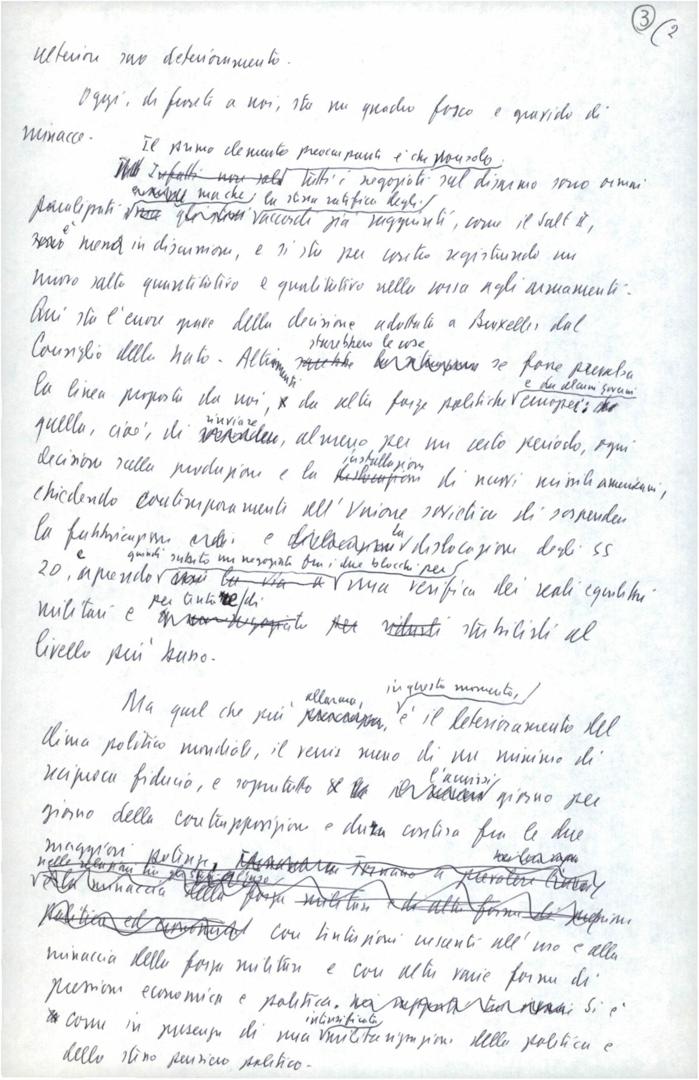 3 (2
ulteriore suo deterioramento.
Oggi, di fronte a noi, sta un quadro fosco e gravido di
minacce.
Il primo elemento preoccupante è che non solo
Infatti non solo tutti i negoziati sul disarmo sono ormai
anche la stessa ratifica degli
paralizzati ma accordi già raggiunti, come il Salt II,
è messa in discussione, e si sta per contro registrando un
nuovo salto quantitativo e qualitativo nella corsa agli armamenti.
Qui sta l'errore grave della decisione adottata a Bruxelles dal
Consiglio della Nato. Altrimenti starebbero le cose se fosse prevalsa
e da alcuni governi
la linea proposta da noi, da altre forze politiche europei:
rinviare
quella, cioè, di almeno per un certo periodo, ogni
installazione
decisione sulla produzione e la dislocazione di nuovi missili americani,
chiedendo contemporaneamente all'Unione sovietica di sospendere
la fabbricazione e la dislocazione degli SS
quindi subito un negoziato tra i due blocchi per
20, e aprendo la via a una verifica dei reali equilibri
per tentare di
militari e negoziato per ridurli stabilirli al
livello più basso.
allarma, in questo momento,
Ma quel che più preoccupa, è il deterioramento del
clima politico mondiale, il venir meno di un minimo di
l'acuirsi
reciproca fiducia, e soprattutto giorno per
giorno della contrapposizione e dura contesa fra le due
maggiori potenze, tornano a prevalere
nelle relazioni
la minaccia della forza militare e di altre forme di pressione
politica ed economica con tentazioni crescenti all'uso e alla
minaccia della forza militare e con altre varie forme di
pressione economica e politica. Si è
intensificata
come in presenza di una militarizzazione della politica e
dello stesso pensiero politico.